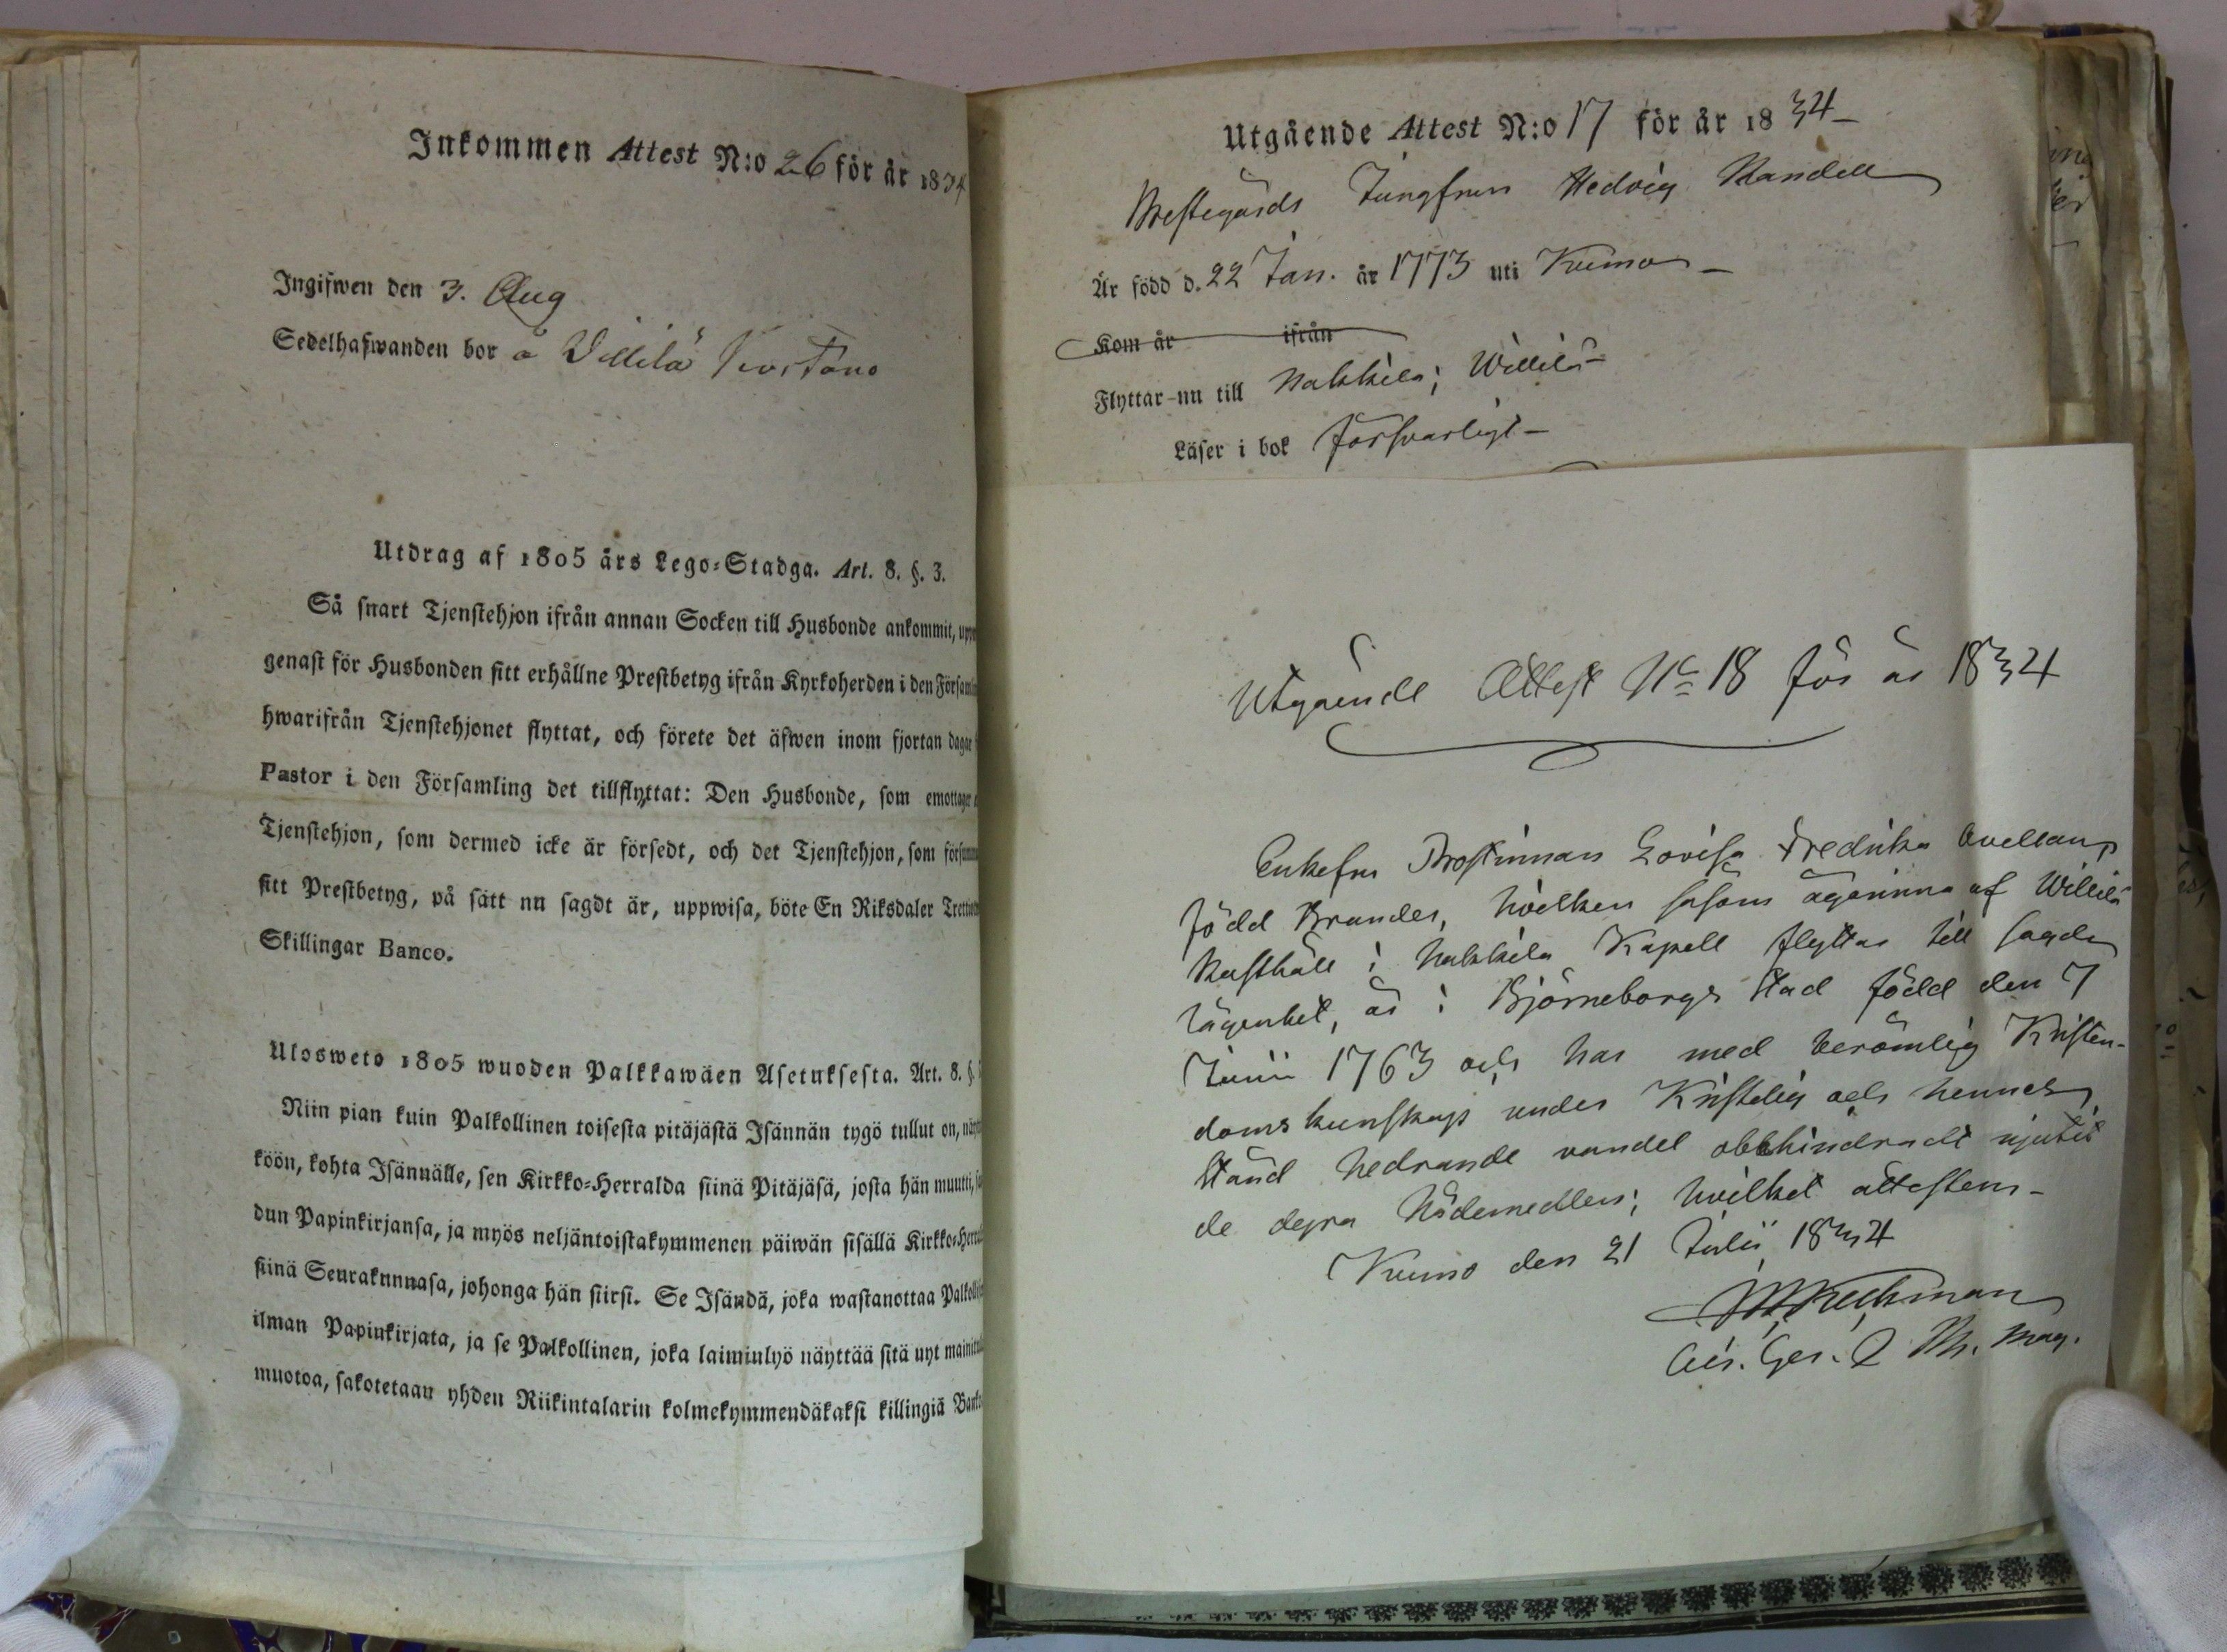 Inkommen Attest N:o 26 för år 1834
Ingifwen den 3. Aug
Sedelhafwanden bor å Villilä
Utdrag af 1805 års Lego-Stadga. Art. 8. §. 3.
Så snart Tjenstehjon ifrån annan Socken till Husbonde ankommit,
genast för Husbonden sitt erhållne Prestbetyg ifrån Kyrkoherden i den
hwarifrån Tjenstehjonet flyttat, och förete det äfwen inom fjortan dagar
Pastor i den Församling det tillflyttat: Den Husbonde, som emottager
Tjenstehjon, som dermed icke är försedt, och det Tjenstehjon, som
sitt Prestbetyg, på sätt nu sagdt är, uppwisa, böte En Riksdaler
Skillingar Banco.
Ulosweto 1805 wuoden Palkkawäen Asetuksesta. Art. 8. §.
Niin pian kuin Palkollinen toisesta pitäjästä Isännän tygö tullut on,
köön, kohta Isännälle, sen Kirkko-Herralda siinä Pitäjäsä, josta hän muutti,
dun Papinkirjansa, ja myös neljäntoistakymmenen päiwän sisällä
siinä Seurakunnasa, johonga hän siirsi. Se Isändä, joka wastanottaa
ilman Papinkirjata, ja se Palkollinen, joka laiminlyö näyttää sitä nyt
muotoa, sakotetaan yhden Riikintalarin kolmekymmendäkaksi killingiä
Utgående Attest N:o 17 för år 1834
Prestegårds Jungfrun Hedvig Randell
Är född d. 22 Jan. år 1773 uti Kumo
Kom år ifrån
Flyttar nu till Nakkila; Willilä
Läser i bok försvarligt
Utgående Attest No 18 för år 1834
Enkefru Prostinnan Lovisa Fredrika Avellan,
född Brander, hvilken såsom ägarinna af Willilä
Rusthåll i Nakkila Kapell flyttar till sagde
lägenhet, är i Björneborgs Stad född den 7
Junii 1763 och har med berömlig Kristen-
doms kunskap under Kristelig och hennes
stånd hedrande vandel obehindradt njutit
de dyra Nådemedlen; hvilket attesteras
Kumo den 21 Julii 1834